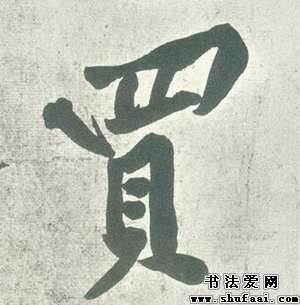 買
书法爱网
www.shufaai.com